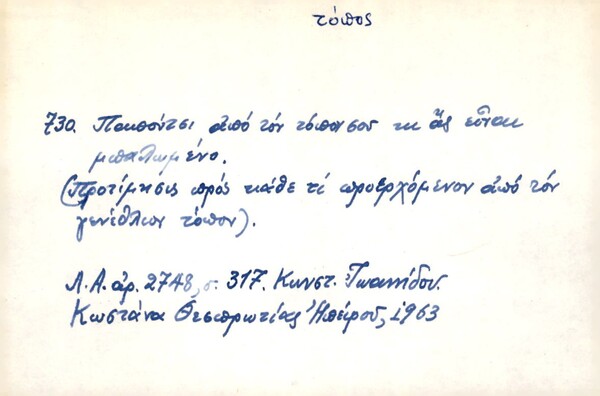 τόπος
730. Παπούτσι ἀπό τόν τόπον σου κι ἄς εἶναι
μπαλωμένο.
(Προτίμησις πρός κάθε τί προερχόμενον ἀπό τόν
γενέθλιον τόπον).
Λ.Α. ἀρ. 2748, σ. 317. Κωνστ. Ἰωαννίδου.
Κωστάνα Θεσπρωτίας Ἠπείρου, 1963